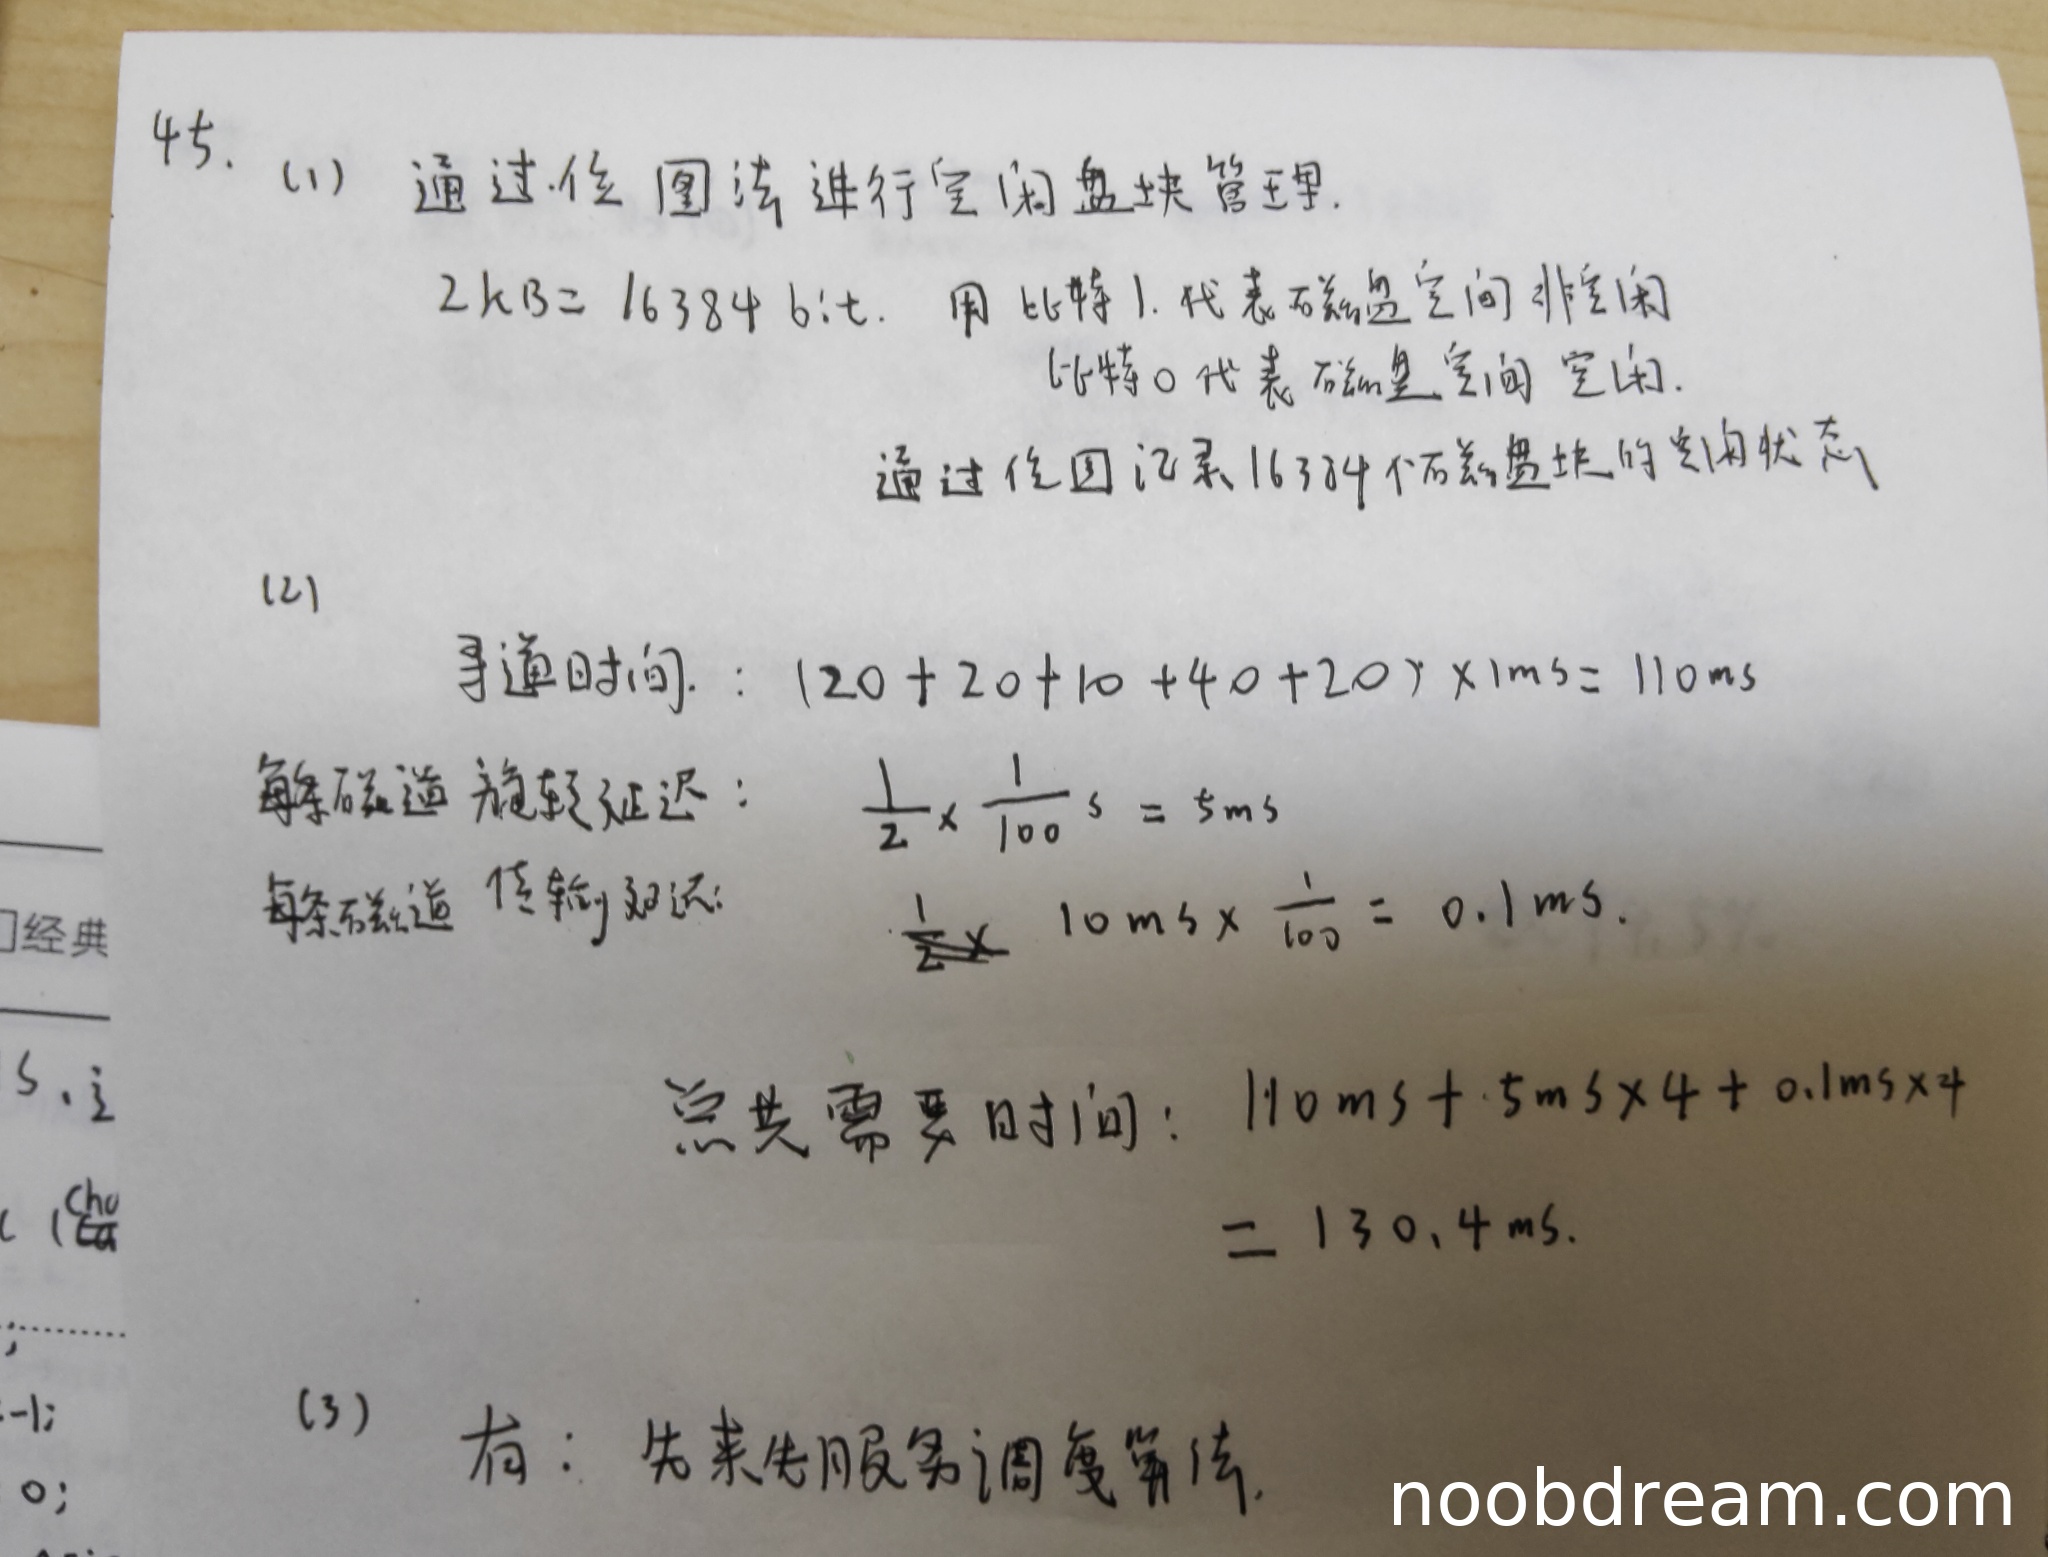 45.
(1) 通过位图法进行空闲盘块管理.
2kB= 16384 bit. 用 比特1.代表磁盘空间非空闲
比特0代表磁盘空间空闲.
通过位图记录16384个磁盘块的空闲状态
(2)
寻道时间.: (20+20+10+40+20) ×1ms= 110ms
每条磁道 旋转延迟: 1/2 × 1/100 s = 5ms
每条磁道 传输延迟: 10ms× 1/100 = 0.1ms.
总共需要时间: 110ms+5ms×4+0.1ms×4
= 130.4ms.
(3) 有: 先来先服务调度算法.
口经典
s.主
Cho
=-1;
0;
noobdream.com